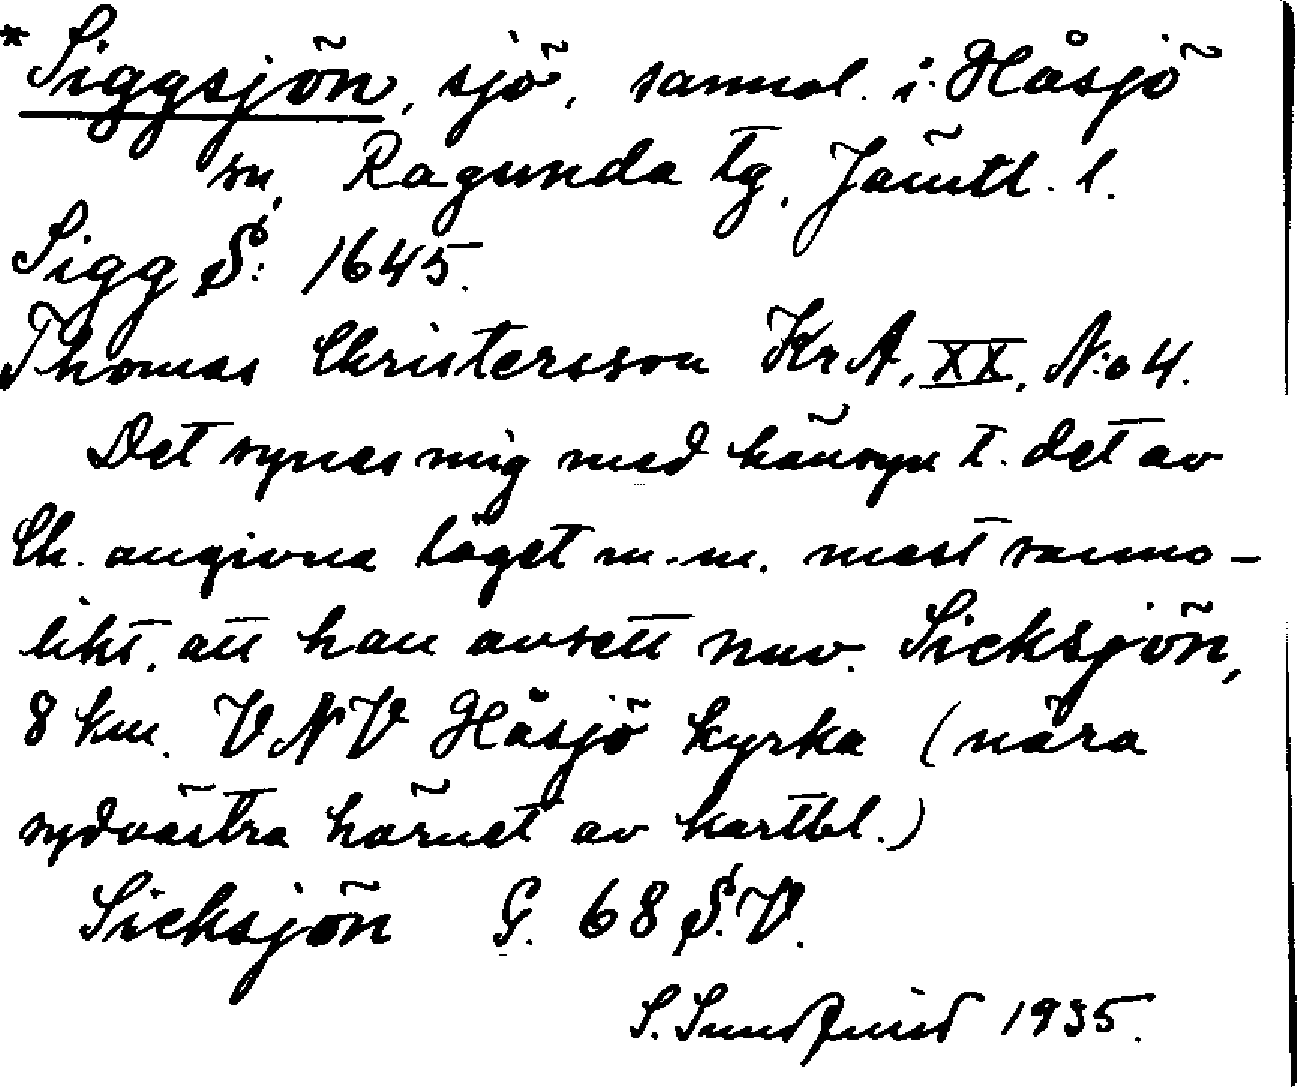 *Siggsjön, sjö, sannol. i Håsjö
sn, Ragunda tg, Jämtl. l.
Sigg S: 1645.
Thomas Christersson KrA, XX, N:o 4.
Det synes mig med hänsyn t. det av
Ch. angivna läget m.m. mest sanno-
likt, att han avsett nuv. Sicksjön,
8 km. VNV Håsjö kyrka (nära
sydvästra hörnet av kartbl.)
Sicksjön G. 68 S.V.
S. Sundquist 1935.